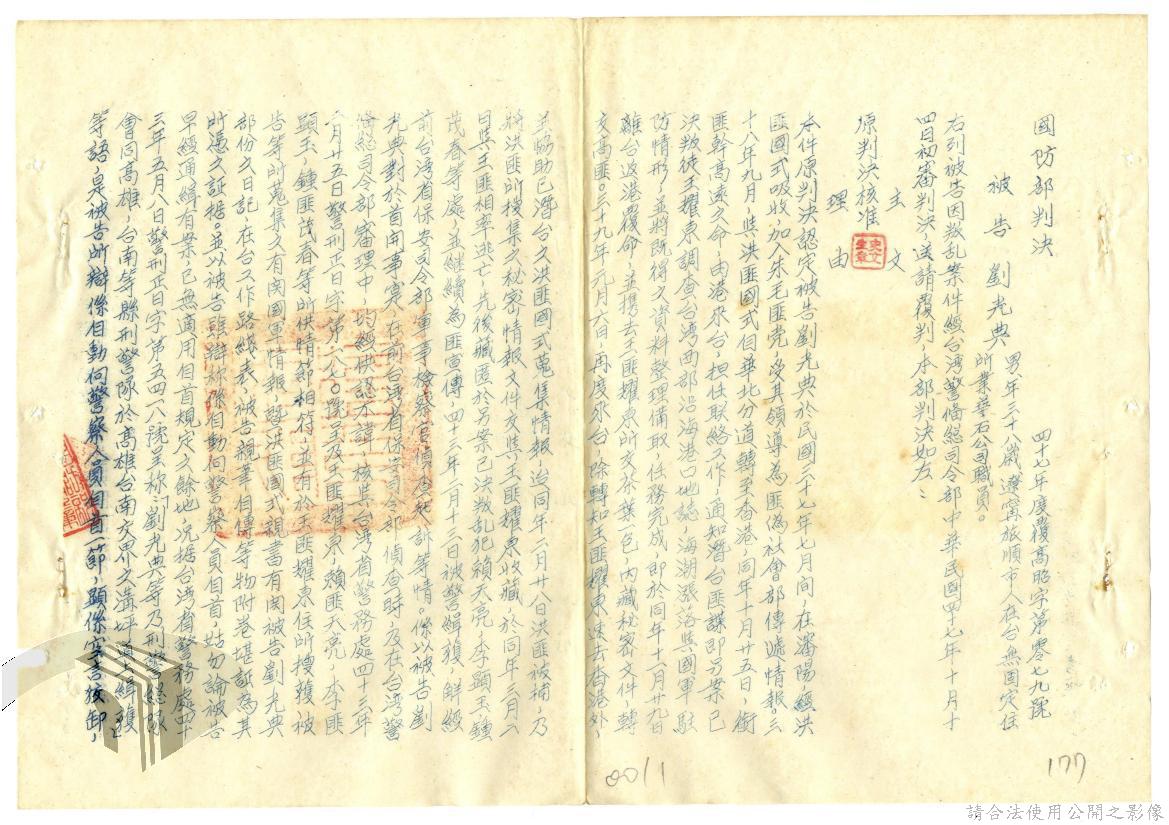 國防部判決
四十七年度覆高昭字第零七九號
被告 劉光典 男年三十八歲遼寧旅順市人在台無固定住
所業華石公司職員。
右列被告因叛乱案件經台湾警備總司令部中華民國四十七年十月十
四日初審判決送請覆判本部判決如左：
主文
原判決核准
理由
本件原判決認定被告劉光典於民國三十七年七月間，在瀋陽經洪
匪國式吸收加入朱毛匪党，受其領導為匪偽社會部傳遞情報，三
十八年九月，與洪匪國式自華北分道轉至香港，同年十月廿五日，銜
匪幹高遠之命，由港來台，担任联絡工作，通知潛台匪諜即另案已
決叛徒王耀東調查台湾西部沿海港口地誌海潮漲落與國軍駐
防情形，並將既得之資料整理備取，任務完成，即於同年十一月廿九日
離台返港覆命，並携去王匪耀東所交茶葉一包，內藏秘密文件，轉
交高匪。三十九年元月六日再度來台，除轉知王匪耀東速去香港外，
並協助已潛台之洪匪國式蒐集情報，迨同年二月廿八日洪匪被捕，乃
將洪匪所搜集之秘密情報文件交與王匪耀東收藏，於同年三月一
日與王匪相率逃亡，先後藏匿於另案已決叛乱犯賴天亮，李顯玉鍾
茂春等處，並継續為匪宣傳，四十三年二月十三日被警緝獲，解經
前台湾省保安司令部軍事檢察官偵查起訴等情。係以被告劉
光典對於首開事實，在前台湾省保安司令部偵查時及在台湾警
備總司令部審理中，均經供認不諱，核與台湾省警務處四十三年
月廿五日警刑正日字第二八七〇號呈及王匪耀東，賴匪天亮，李匪
顯玉，鍾匪茂春等所供情節相符，並有於王匪耀東住所搜獲被
告等所蒐集之有関國軍情報，暨洪匪國式親書有関被告劉光典
部份之日記，在台工作路綫表，被告親筆自傳等物附卷堪証為其
所憑之証據。並以被告雖辯称係自動向警察人員自首，姑勿論被告
早經通緝有案，已無適用自首規定之餘地，况据台湾省警務處四十
三年五月八日警刑正日字第五四八號呈称：劉光典等乃刑警總隊
會同高雄，台南等縣刑警隊於高雄台南交界之溝坪
等語，是被告所辯係自動向警察人員自首一節，顯係空言狡卸，
0011
177
請合法使用公開之影像